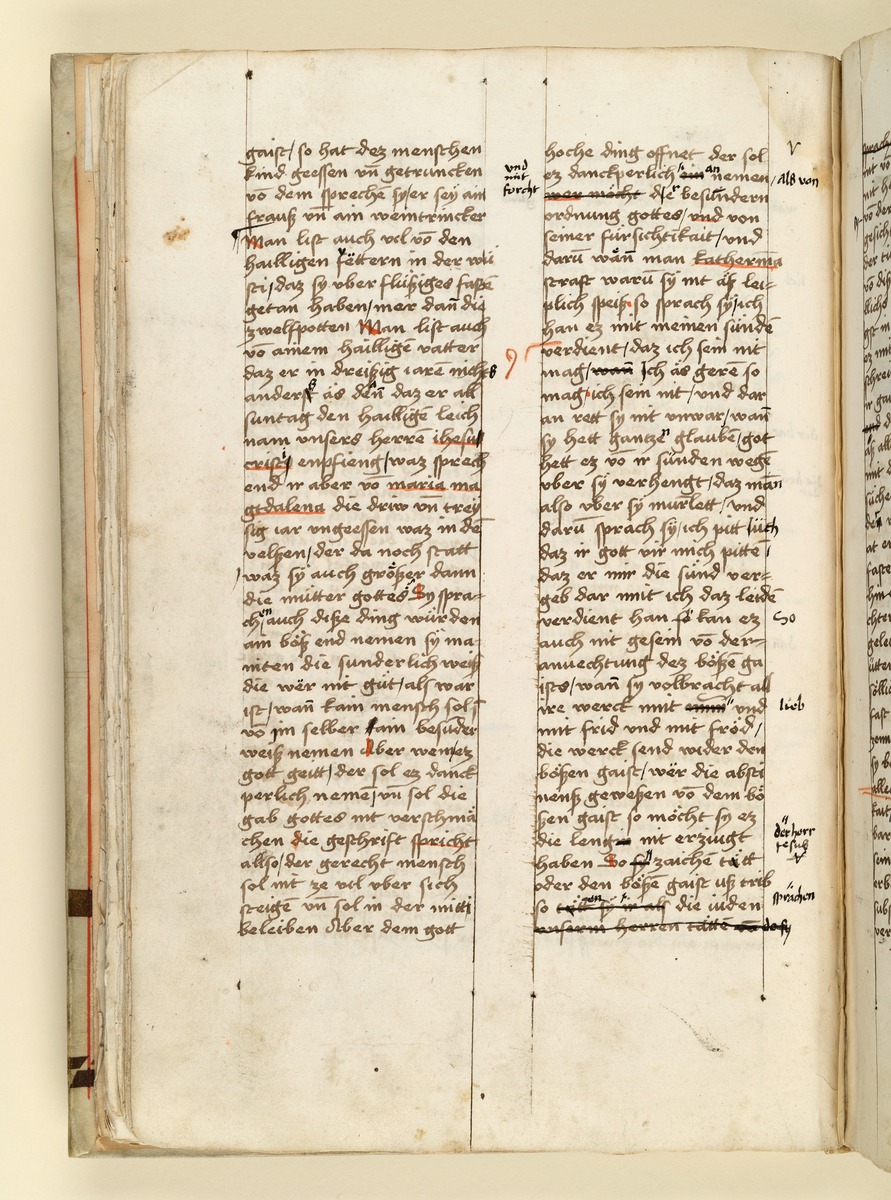 gaist / so hat dez menschen
kind geessen vn̄ getruncken
vō dem sprechē sy / er sey ain
frauß vn̄ ain weintrincker
Man list auch vil vō den
hailligen vettern in der wü
sti / daz sy vber flüßiges fastē
getan haben / mer dan̄ die
zwelfpotten Man list auch
vō ainem hailligē vatter
daz er in dreißig iare nichts
anders äs den̄ daz er all
suntag den hailligē leich
nam vnsers herrē ihesu
cristi enpfieng / waz sprech
end ir aber vō maria ma
gdalena die driw vn̄ trey
sig iar vngeessen waz in dē
velßen / der da noch statt
/ waz sy auch größer dann
die můtter gottes Sy spra-
chen auch diße ding würden
ain böß end nemen sy ma
niten die sunderlich weiß
die wër nit gůt / als war
ist / wan̄ kain mensch sol
vō im selber kain besūder
weiß nemen Aber wem ez
gott geitt / der sol ez danck
perlich nemē / vn̄ sol die
gab gottes nit verschmä
chen die geschrift spricht
allso / der gerecht mensch
sol nit ze vil vber sich
steigē vn̄ sol in der mitti
beleiben Aber dem gott
hoche ding offnet der sol
ez danckperlich ein an nemen /
und mit forcht
als von
wer möcht der besundern
ordnung gottes / und von
seiner fürsichtikait / und
darū wan̄ man katherina
straft warū sy nit äß lei-
plich speiß so sprach sy / ich
han ez mit meinen sündē
verdient / daz ich sein nit
mag / wan̄ Ich äs gerē so
mag ich sein nit / und dar
an rett sy nit vnwar / wan̄
sy hett gantzen glaubē / got
hett ez vō ir sünden wegē
vber sy verhengt / daz man
also vber sy murlett / und
darū sprach sy / ich pitt üch
daz ir gott vir mich pittē /
daz er mir die sünd ver-
geb dar mit ich daz leidē
verdient han so kan ez
So
auch nit gesein vō der
anuechtung dez böße ga
ists / wan̄ sy volbracht all
ire werck mit und
lieb
mit frid und mit fröd /
die werck send wider den
bößen gaist / wër die absti
nenß geweßen vō dem bö
ßen gaist so möcht sy ez
die leng nit erzügt
der herr
iesus
haben So zaiche tätt
oder den bößē gaist uß trib
so tätten sy ir als die iüden
sprächen
unserm herren tättē do sy